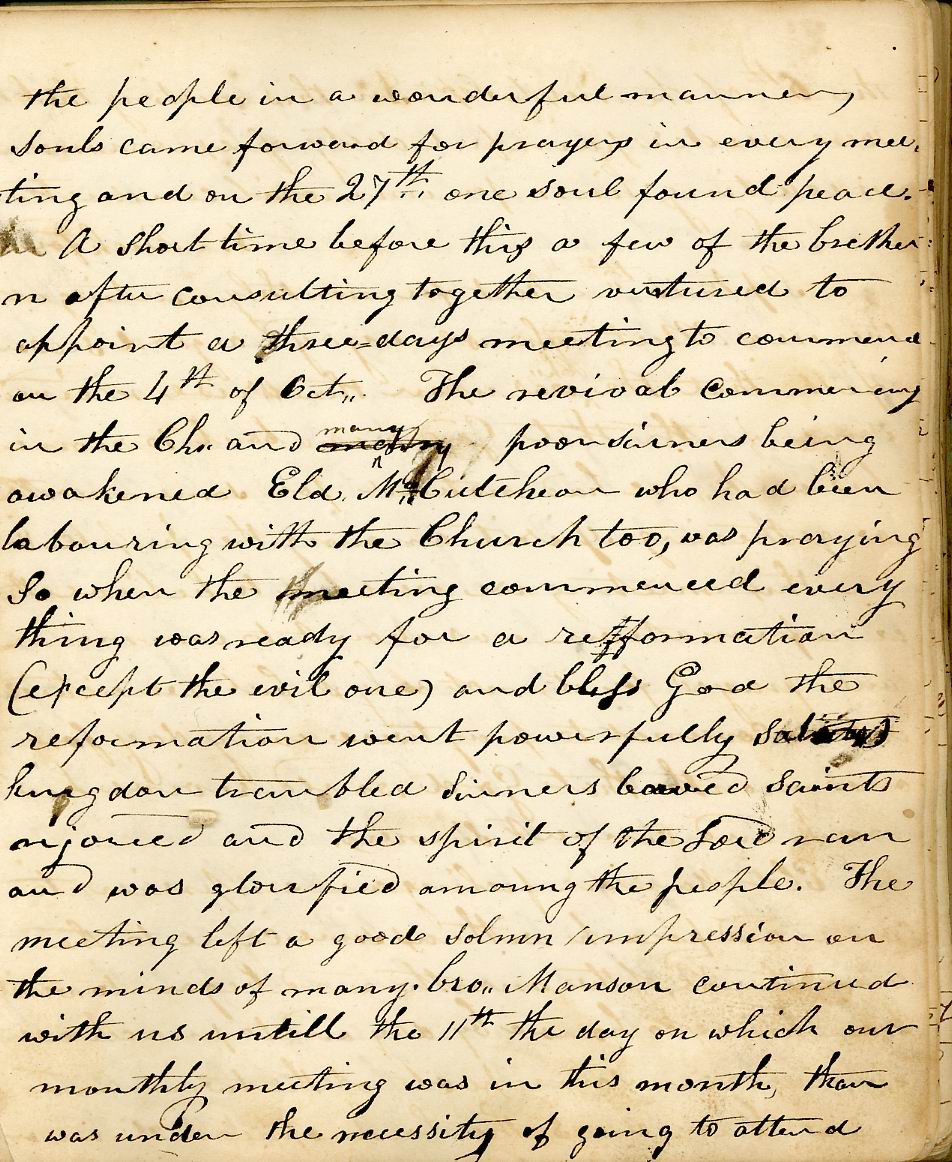 the people in a wonderful manner,
souls came forward for prayers in every mee,
ting and on the 27th one soul found peace.
A short time before this a few of the brether
n after consulting together ventured to
appoint a three=days meeting to commence
on the 4th of Oct,, The revival commencing
in the Chr. and many poor sinners being
awakened Eld. McCutcheon who had been
labouring with the Church too, was praying
So when the meeting commenced every
thing was ready for a refformation
(except the evil one) and bless God the
reformation went powerfully satans
kingdom trembled sinners bowed saints
rejoiced and the spirit of the Lord ran
and was glorified amoung the people. The
meeting left a good solmn impression on
the minds of many. bro,, Manson continued
with us untill the 11th the day on which our
monthly meeting was in this month, than
was under the necessity of going to attend